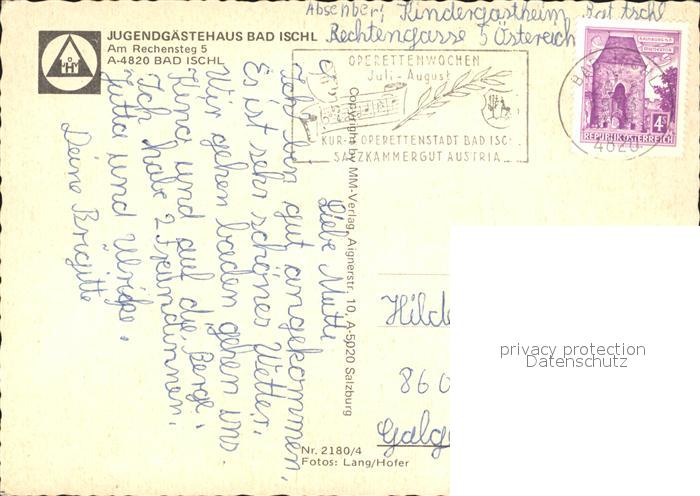 Absender: Kindergastheim Bad Ischl
Rechtengasse 5 Östereich
JUGENDGÄSTEHAUS BAD ISCHL
Am Rechensteg 5
A-4820 BAD ISCHL
OPERETTENWOCHEN
Juli - August
KUR- OPERETTENSTADT BAD ISCHL
SALZKAMMERGUT AUSTRIA
4820
REPUBLIK ÖSTERREICH
4S
Liebe Mutti
Ich bin gut angekommen,
Es ist sehr schönes Wetter.
Wir gehen baden gehen ins
Kino und auf die Berge.
Ich habe 2 Freundinnen.
Jutta und Ulrike.
Deine Brigitte
Copyright by MM-Verlag, Aignerstr. 10, A-5020 Salzburg
Nr. 2180/4
Fotos: Lang/Hofer
Hild
86
Galg
privacy protection
Datenschutz